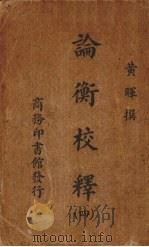 黃暉撰
論衡校釋
(四)
商務印書館發行